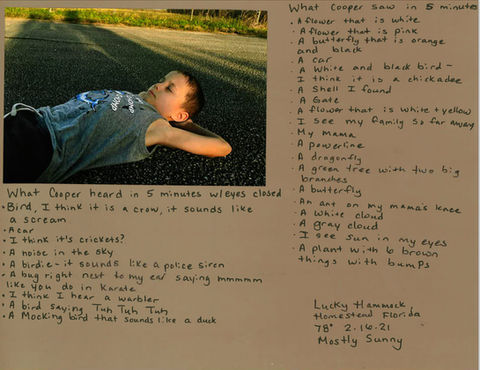 What Cooper heard in 5 minutes w/eyes closed
• Bird, I think it is a crow, it sounds like
a scream
• A car
• I think it's crickets?
• A noise in the sky
• A birdie - it sounds like a police siren
• A bug right nest to my ear saying mmmmm
like you do in Karate
• I think I hear a warbler
• A bird saying Tuh Tuh Tuh
• A Mocking bird that sounds like a duck
What Cooper saw in 5 minutes
• A flower that is white
• A flower that is pink
• A butterfly that is orange
and black
• A car
• A White and black bird -
I think it is a chickadee
• A Shell I found
• A Gate
• A flower that is white + yellow
• I see my family so far away
• My mama
• A powerline
• A dragonfly
• A green tree with two big
branches
• A butterfly
• An ant on my mama's knee
• A white cloud
• A gray cloud
• I see sun in my eyes
• A plant with 6 brown
things with bumps
Lucky Hammock,
Homestead Florida
78° 2.16.21
Mostly Sunny